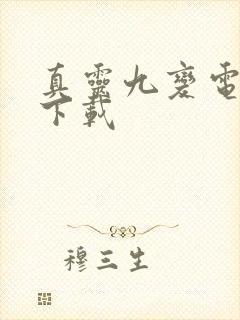 真靈九變電
下載
穆三生